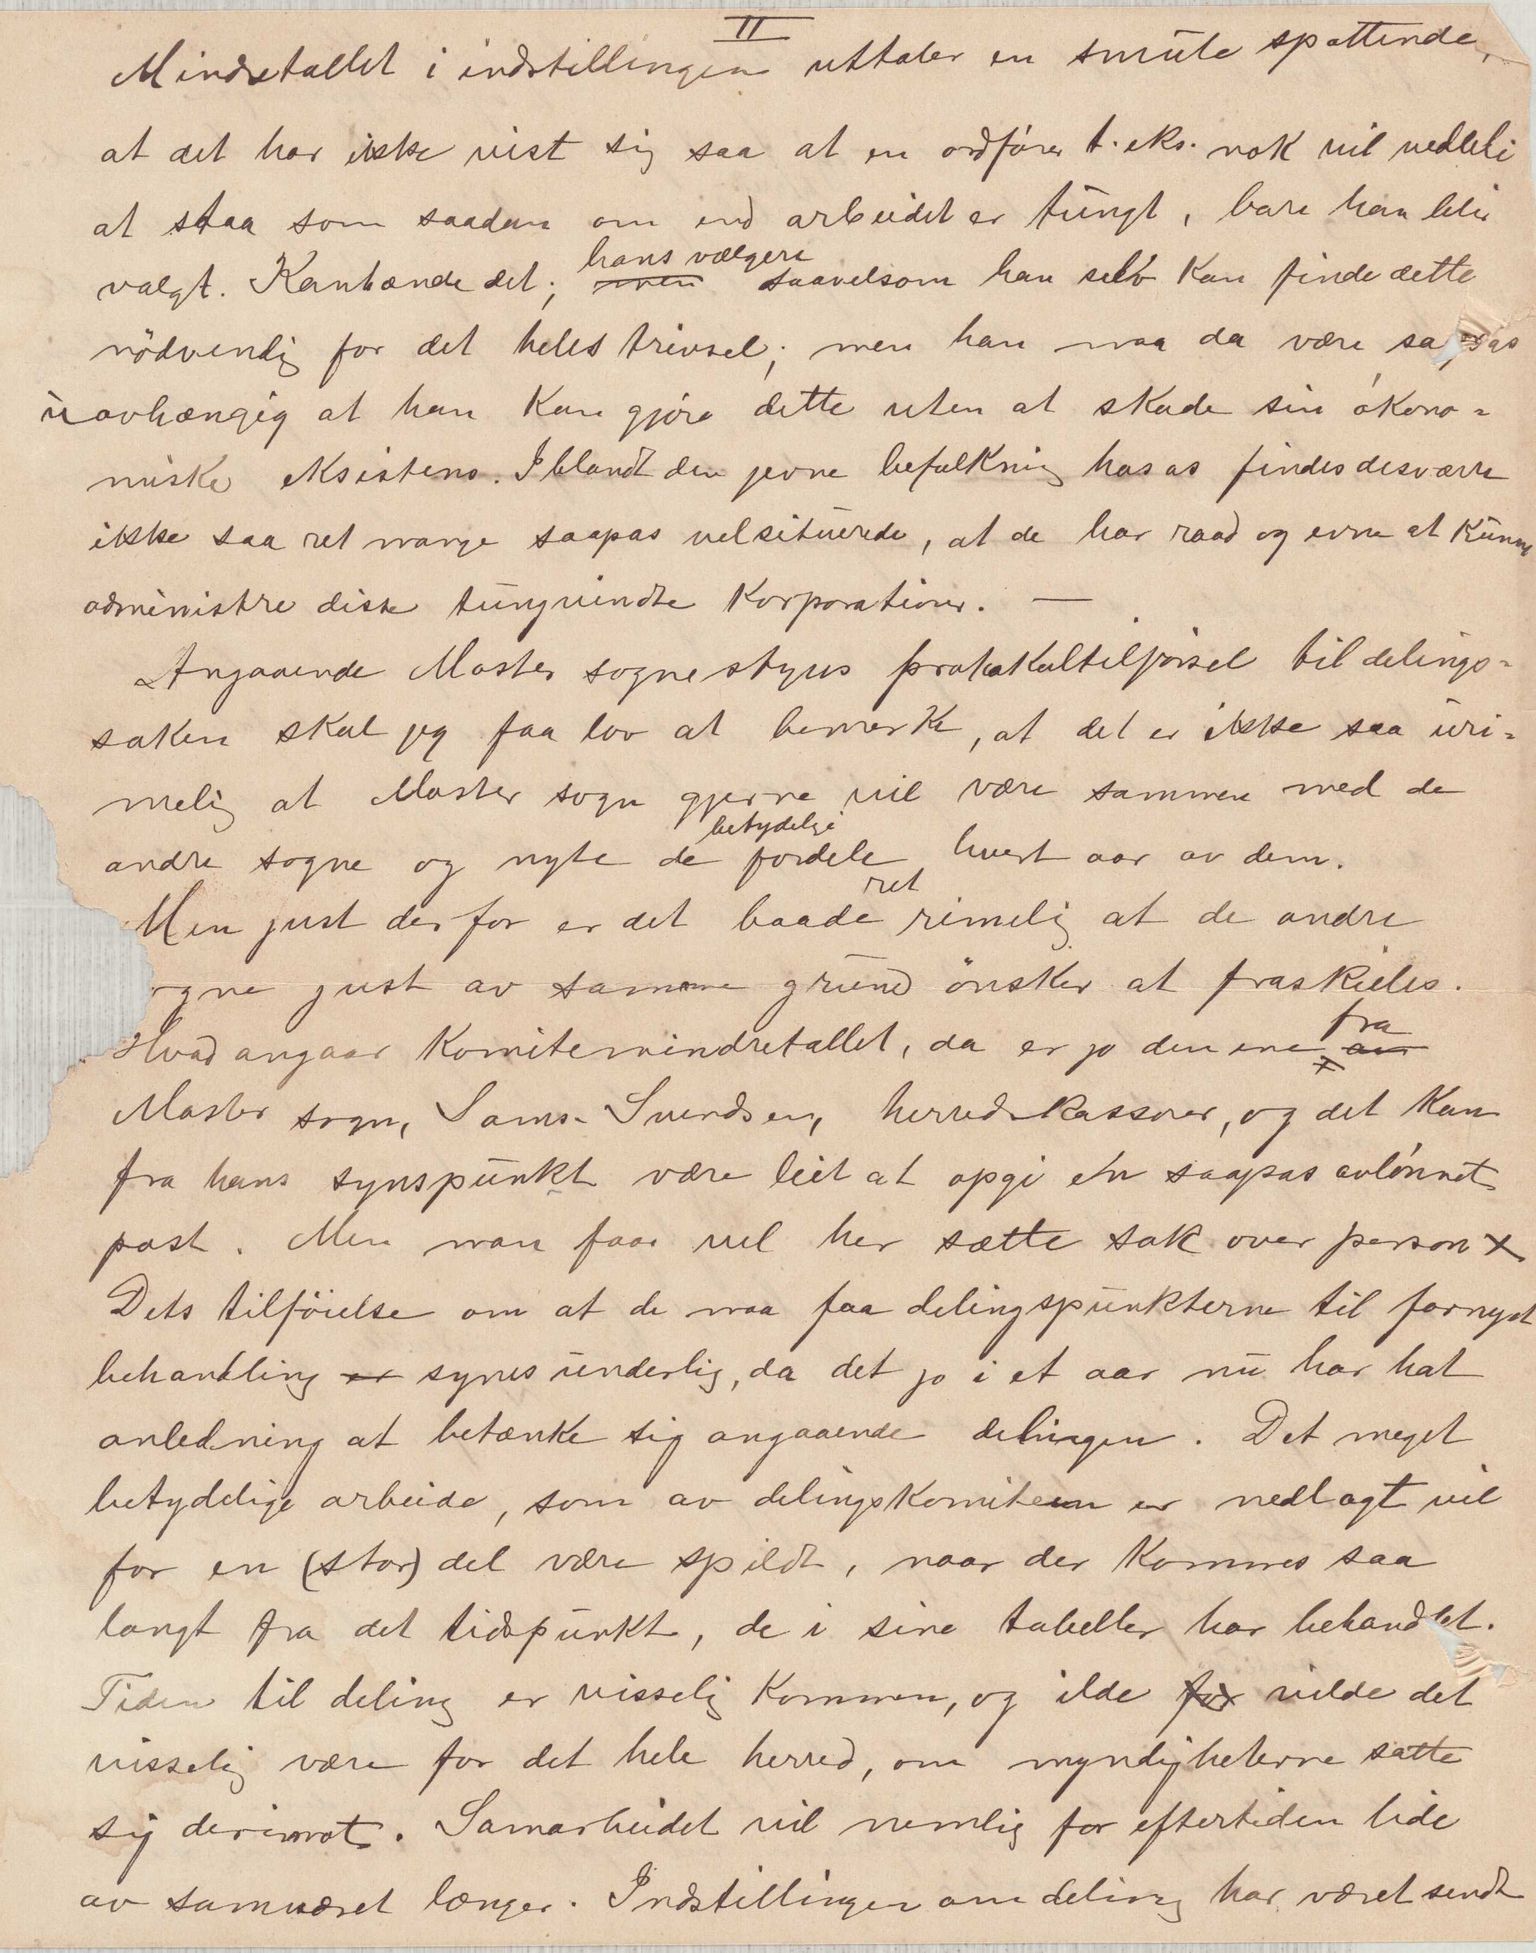 II
Mindretallet i indstillingen uttaler en smule spottende,
at det har ikke vist sig saa at en ordfører t. eks. nok vil vedbli
at staa som saadan om end arbeidet er tungt, bare han blir
valgt. Kanhænde det; men hans vælgere saavelsom han selv kan finde dette
nödvendig for det heles trivsel; men han maa da være saapas
uavhængig at han kan gjøre dette uten at skade sin økono-
miske eksistens. Iblandt den jevne befolkning hos os findes desværre
ikke saa ret mange saapas velsituerede, at de har raad og evne at kunne
administre disse tungvindte korporationer. —
Angaaende Moster sognestyres protokoltilførsel til delings-
saken skal jeg faa lov at bemerke, at det er ikke saa uri-
melig at Moster sogn gjerne vil være sammen med de
andre sogne og nyte de betydelige fordele hvert aar av dem.
Men just derfor er det baade ret rimelig at de andre
ogne just av samme grund önsker at fraskilles.
Hvad angaar komitemindretallet, da er jo den ene av fra
Moster sogn, Sams. Svendsen, herredskasserer, og det kan
fra hans synspunkt være leit at opgi én saapas avlønnet
post. Men man faar vel her sætte sak over person x
Dets tilföielse om at de maa faa delingspunkterne til fornyet
behandling er synes underlig, da det jo i et aar nu har hat
anledning at betænke sig angaaende delingen. Det meget
betydelige arbeide, som av delingskomiteen er nedlagt vil
for en (stor) del være spildt, naar der kommes saa
langt fra det tidspunkt, de i sine tabeller har behandlet.
Tiden til deling er visselig kommen, og ilde for vilde det
visselig være for det hele herred, om myndigheterne satte
sig derimot. Samarbeidet vil nemlig for eftertiden lide
av samværet længer. Indstillingen om deling har været sendt